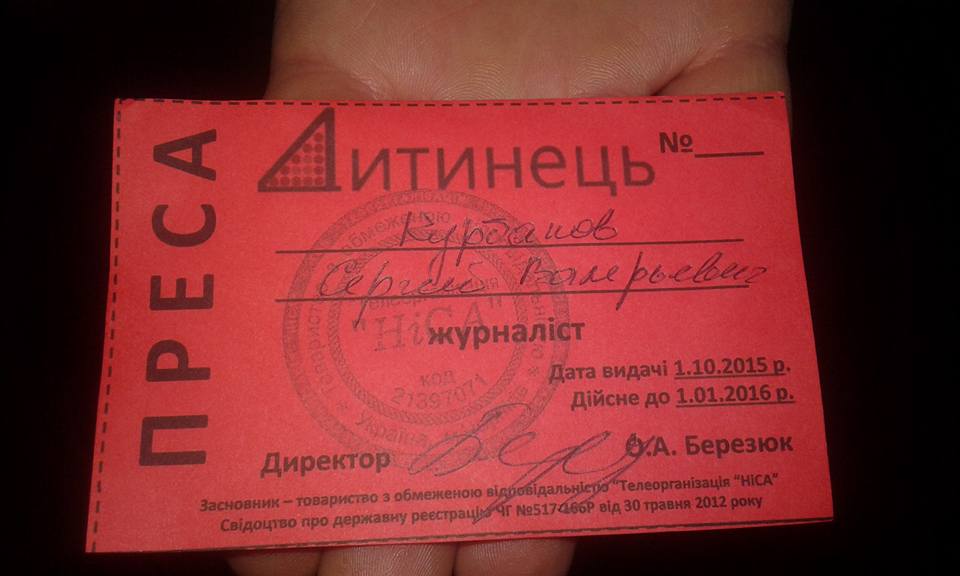 ПРЕСА
Дитинець
№
Курбанов
Сергий Валерьевич
журналіст
Дата видачі 1.10.2015 р.
Дійсне до 1.01.2016 р.
Директор
О.А. Березюк
Засновник – товариство з обмеженою відповідальністю "Телеорганізація "НіСА"
Свідоцтво про державну реєстрацію ЧГ №517-166Р від 30 травня 2012 року
обмеженою
"НіСА"
код
21397071
Україна